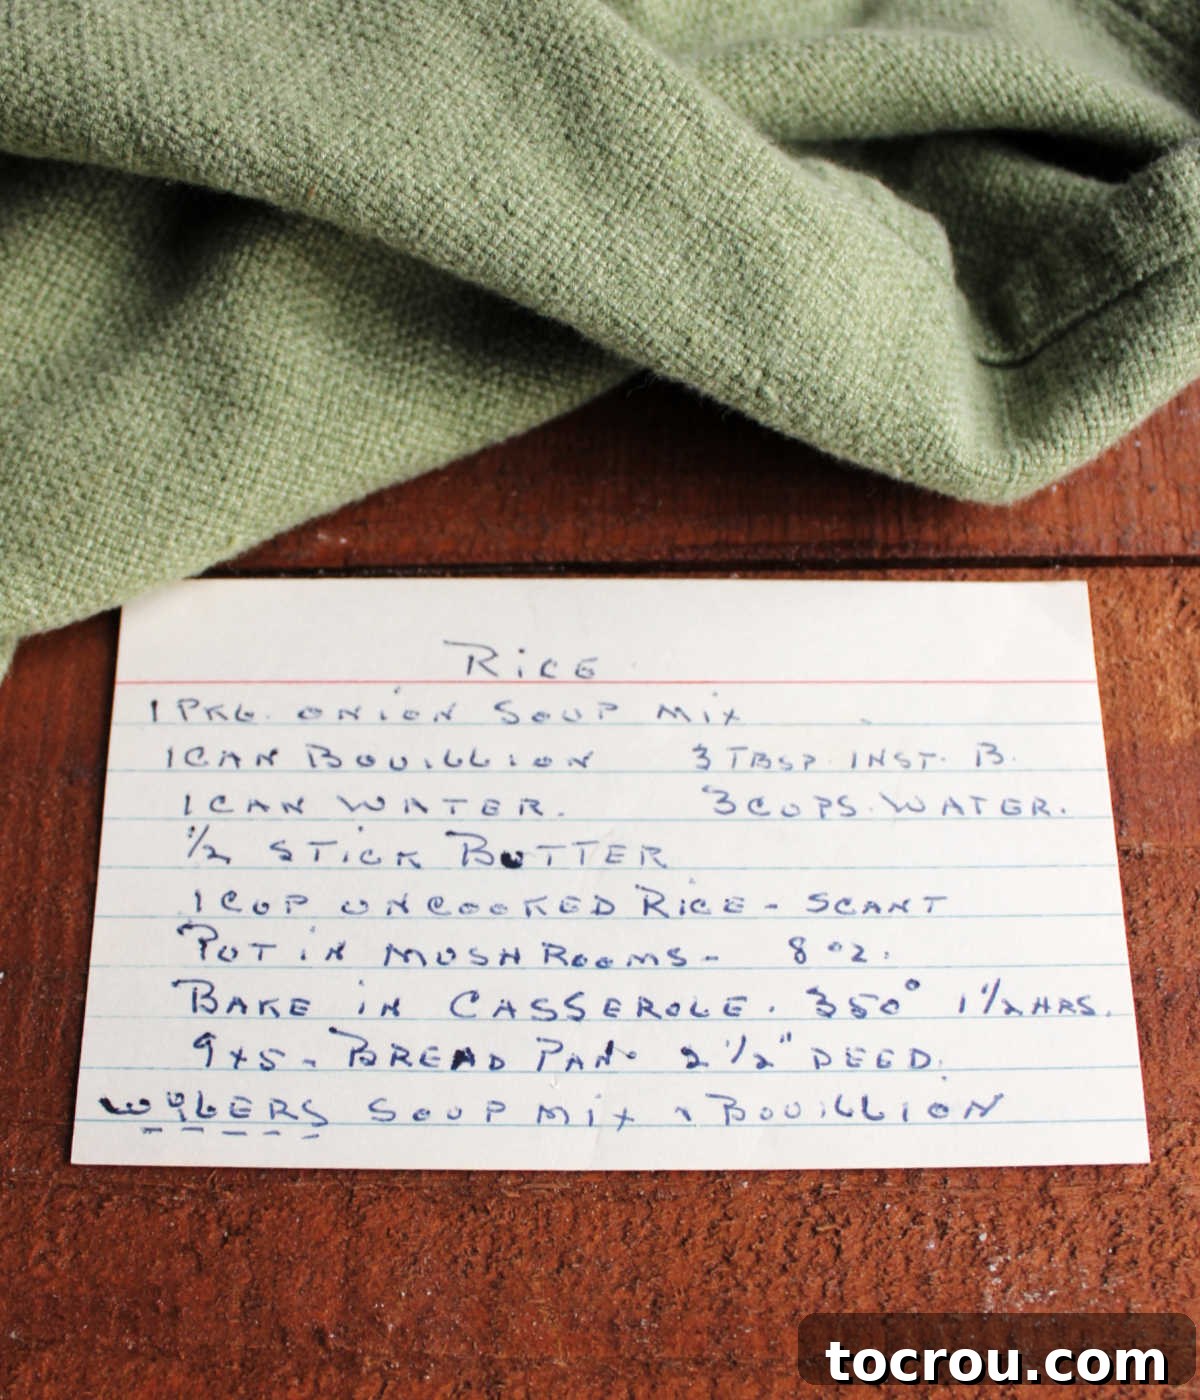 RiCE
1 PKG. ONiON SOUP MiX
1 CAN BOUiLLiON 3 TBSP. INST. B.
1 CAN WATER. 3 CUPS. WATER.
1/2 STiCK BUTTER
1 CUP UNCOOKED RiCE - SCANT
PUT iN MUSHROOMS - 8 OZ.
BAKE iN CASSEROLE. 350° 1 1/2 HRS.
9x5 - BREAD PAN. 2 1/2" DEED.
SOUP MiX & BOUiLLION
tocrou.com